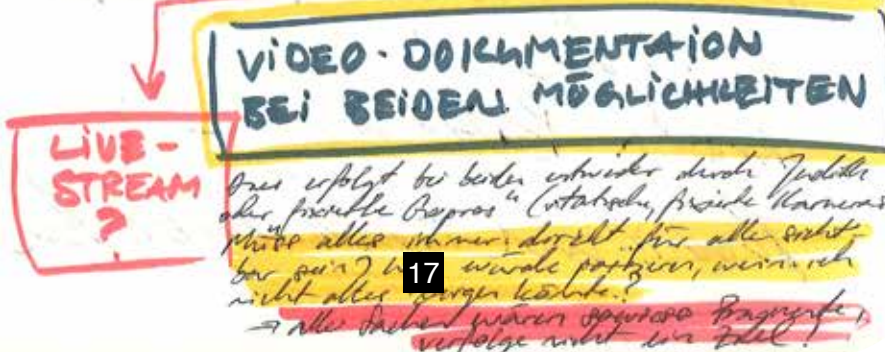 VIDEO-DOKUMENTAION
BEI BEIDEN MÖGLICHKEITEN
LIVE-
STREAM
?
erfolgt bei beiden entweder durch Judith
oder fixierte Gopros" (statische, fixierte Kameras
Müsse alles immer direkt für alle sicht-
bar sein? würde passieren, wenn ich
nicht alles zeigen könnte?
17
→ alle Sachen wären Fragmente,
verfolge nicht ein Ziel!